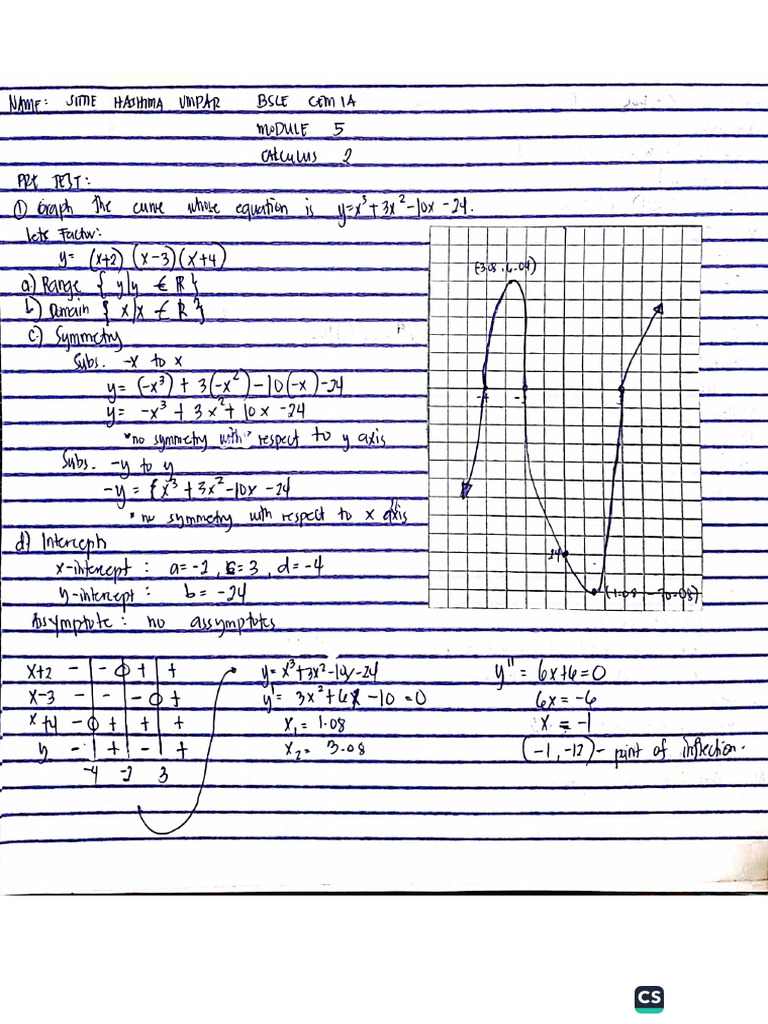 NAME: SITTIE HASHIMA UMPAR BSCE CEM 1A
MODULE 5
CALCULUS 2
PRE TEST:
① Graph the curve whose equation is y=x³+3x²-10x-24.
lets Factor:
y= (x+2) (x-3)(x+4)
a) Range { y|y ∈ ℝ}
b) Domain { x|x ∈ ℝ}
c) Symmetry
Subs. -x to x
y= (-x³) + 3(-x²) -10(-x)-24
y= -x³ + 3x²+ 10x -24
*no symmetry with respect to y axis
Subs. -y to y
-y = {x³ +3x²-10x -24
* no symmetry with respect to x axis
d) Intercept
x-intercept : a=-2 , c=3 , d=-4
y-intercept : b = -24
Assymptote : no assymptotes
(3.08, 6.04)
-4 -2 3
24
(1.08 -70.08)
x+2 - - 0 + +
x-3 - - - 0 +
x+4 - 0 + + +
y - + - +
-4 -2 3
y= x³+3x²-10x-24
y'= 3x²+6x -10 =0
x₁= 1.08
x₂= 3.08
y''= 6x+6=0
6x=-6
x = -1
(-1,-12)- point of inflection.
CS